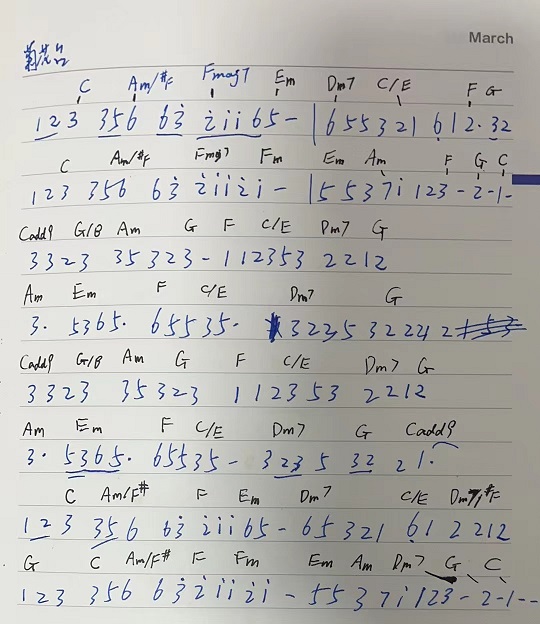 March
菊花台
C Am/#F Fmaj7 Em Dm7 C/E F G
123 356 63 2116 5 - | 6 5 5 3 2 1 6 1 2. 32
C Am/#F Fmaj7 Fm Em Am F G C
123 356 63 211 21 - | 5 5 3 7 1 123 - 2 - 1 -
Cadd9 G/B Am G F C/E Dm7 G
3323 35 323 - 1 12353 2212
Am Em F C/E Dm7 G
3. 5365. 65535. 3235 32221 2
Cadd9 G/B Am G F C/E Dm7 G
3323 35323 1 12353 2212
Am Em F C/E Dm7 G Cadd9
3. 5365. 65535 - 3235 32 21.
C Am/F# F Em Dm7 C/E Dm7 #F
123 356 63 21165 - 65 321 61 2 212
G C Am/F# F Fm Em Am Dm7 G C
123 356 63 211 21 - 553 71 123 - 2 - 1 - -